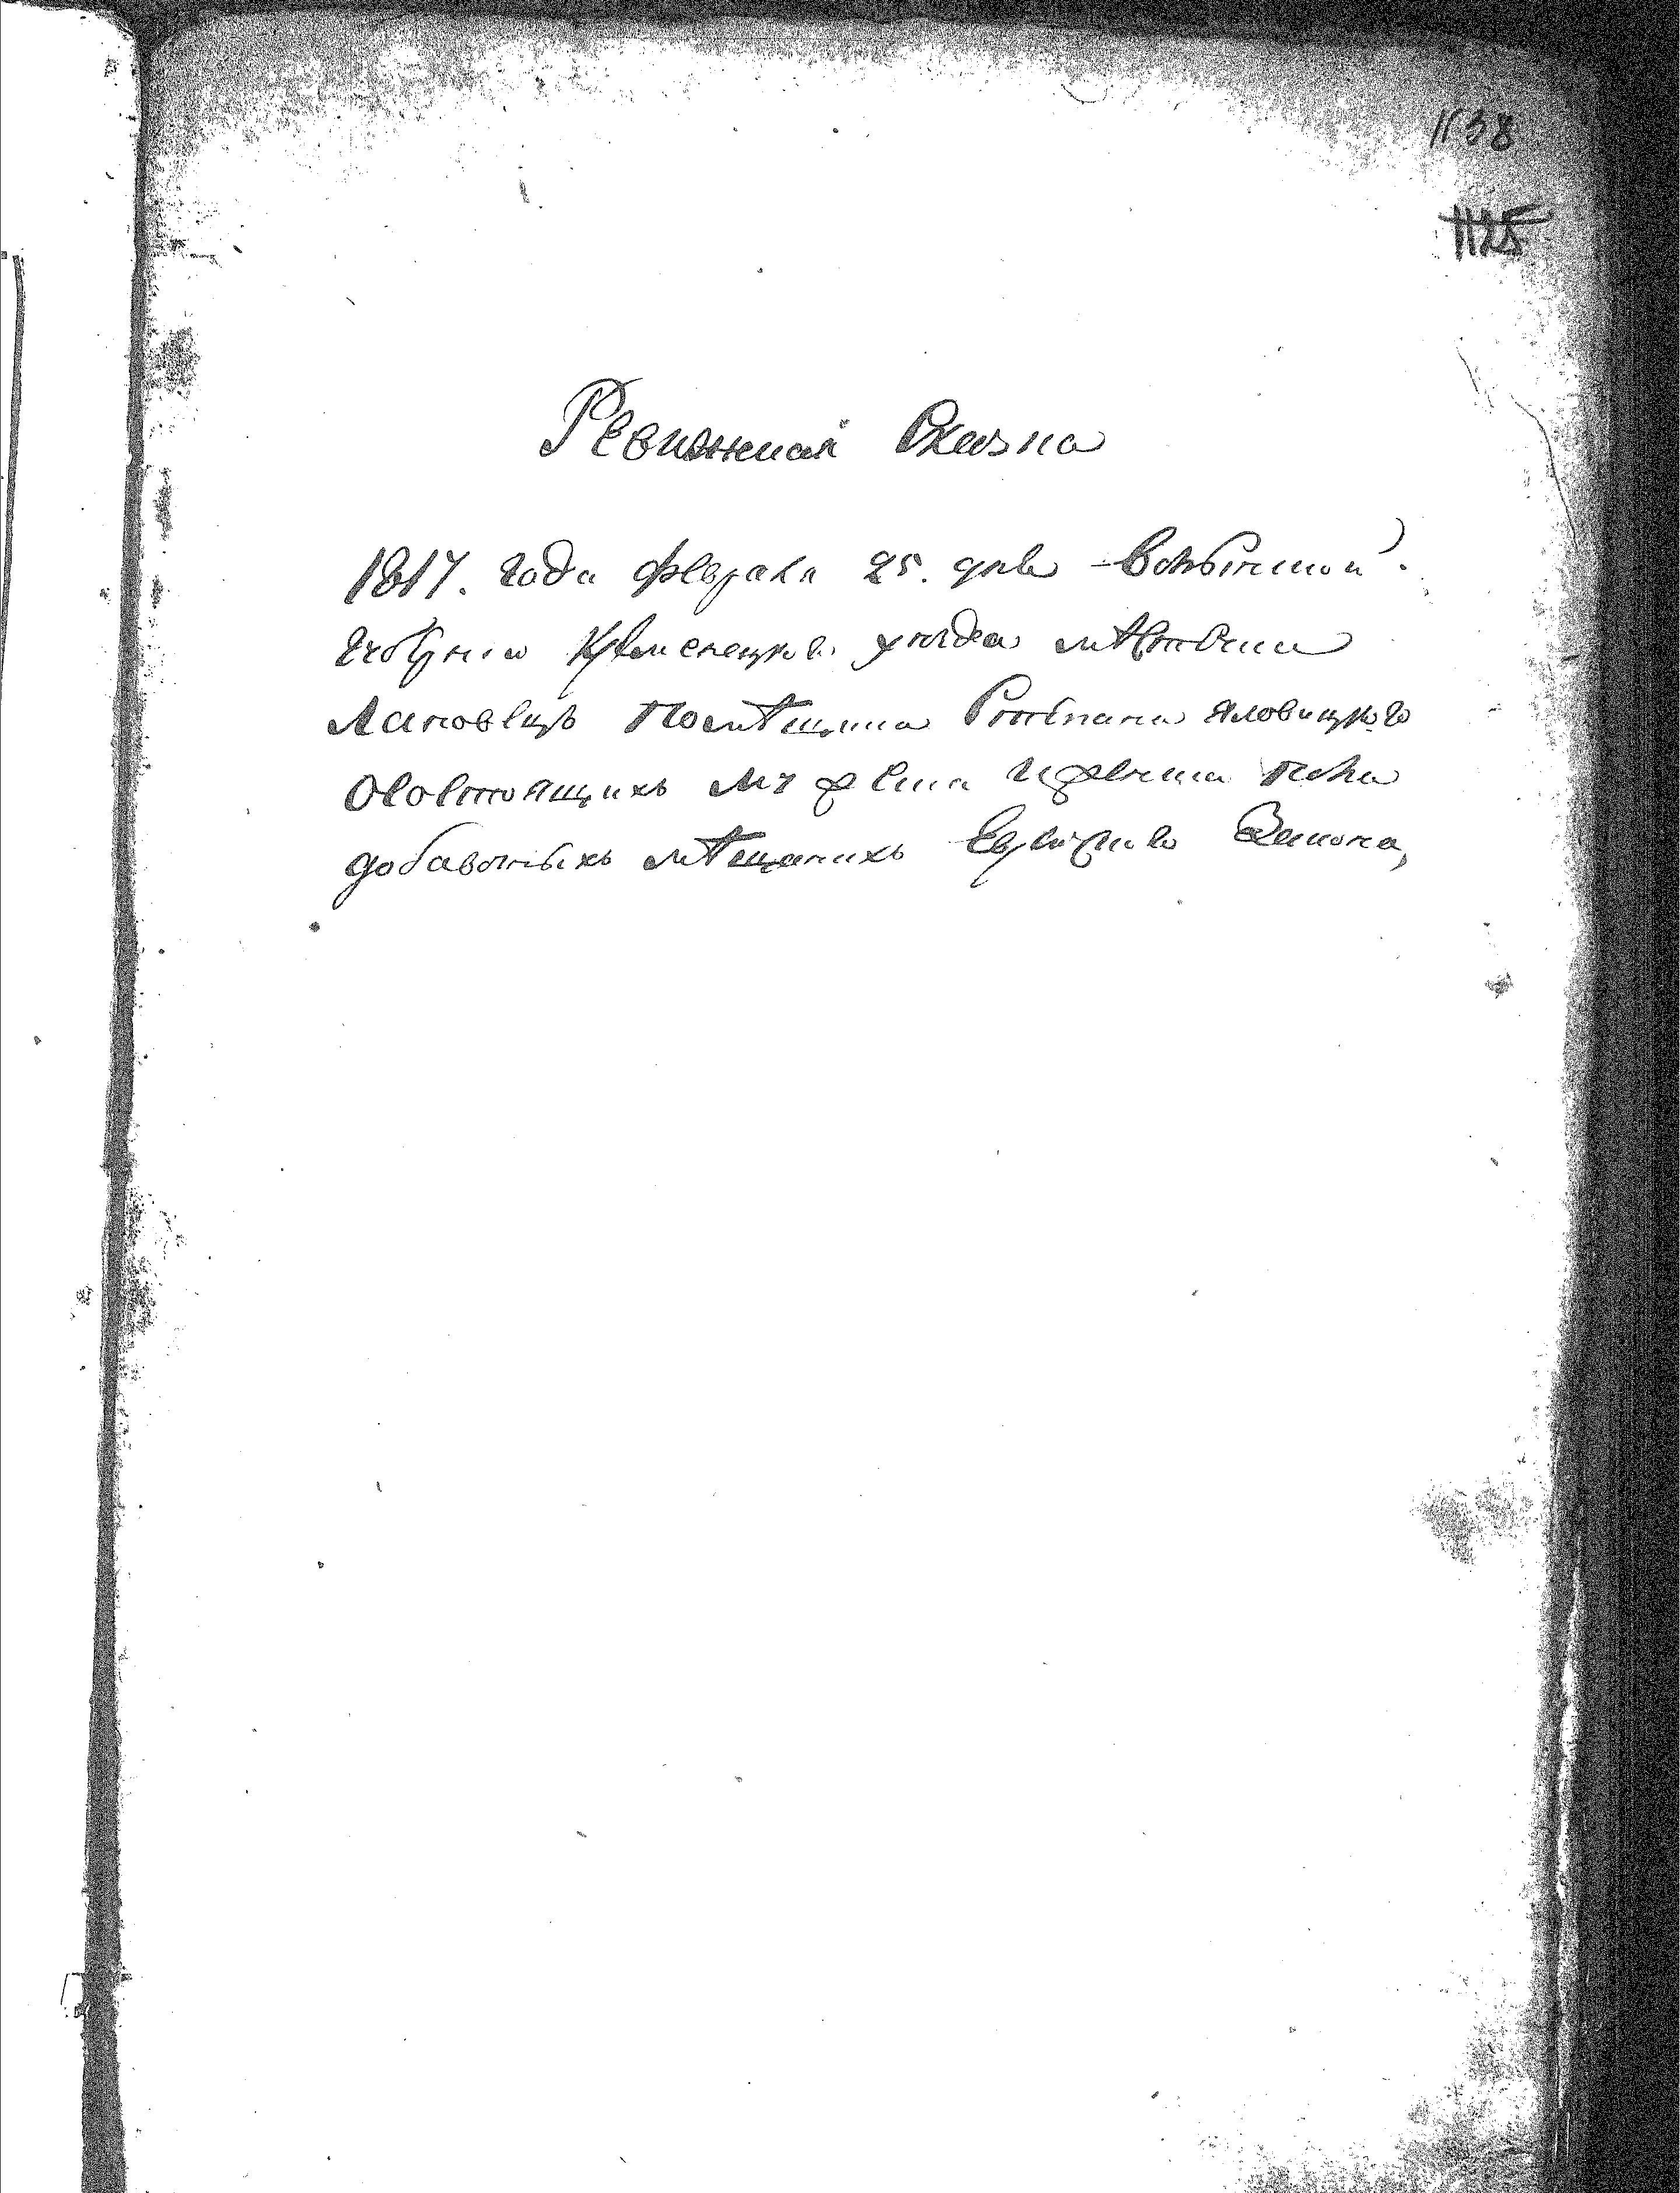 1138
1125
Ревижская Сказка
1817. года февраля 25. дня Волынской
Губернии Кременецкого уезда мѣстечка
Лановецъ Помѣщика Стефана Яловицкого
О состоящихъ мужеска и женска пола
добавочныхъ мѣщанихъ Еврейского Закона,